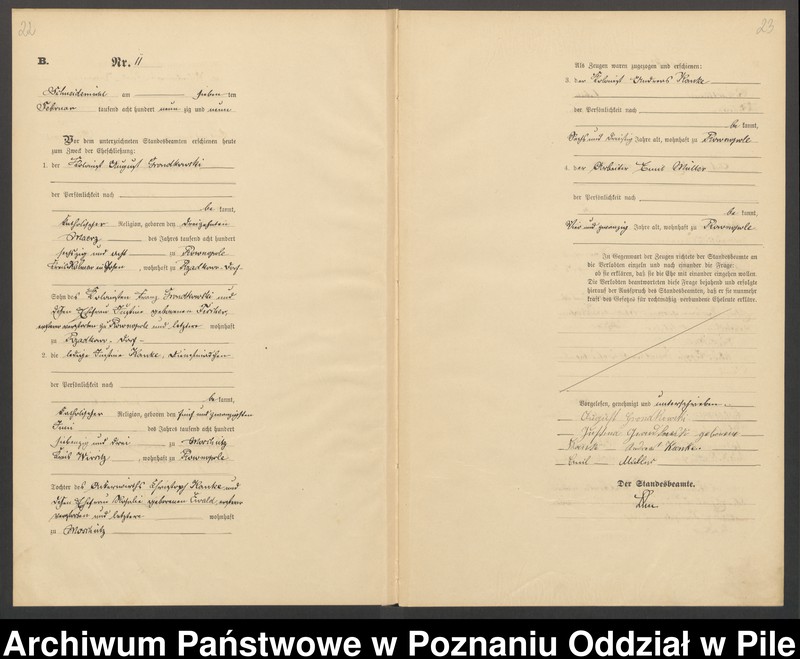 22
B.
Nr. 11
Schneidemühl am sieben ten
Februar tausend acht hundert neun zig und neun
Vor dem unterzeichneten Standesbeamten erschienen heute
zum Zweck der Eheschließung:
1. der Kolonist August Grondkowski
der Persönlichkeit nach
be kannt,
katholischer Religion, geboren den dreizehnten
Maerz des Jahres tausend acht hundert
sechszig und acht zu Rownopole
Kreis Kolmar in Posen, wohnhaft zu Rzadkowo-Dorf
Sohn des Kolonisten Franz Grondkowski und
dessen Ehefrau Justine geborenen
ersterer verstorben zu Rownopole und letztere wohnhaft
zu Rzadkowo-Dorf
2. die ledige Justine Kanke, Dienstmädchen
der Persönlichkeit nach
be kannt,
katholischer Religion, geboren den fünf und zwanzigsten
Juni des Jahres tausend acht hundert
siebenzig und drei zu Moschütz
Kreis Wirsitz, wohnhaft zu Rownopole
Tochter des Ackerwirths Christoph Kanke und
dessen Ehefrau Rosalie geborenen Ewald, ersterer
verstorben und letztere wohnhaft
zu Moschütz
23
Als Zeugen waren zugezogen und erschienen:
3. der Kolonist Andreas Kanke
der Persönlichkeit nach
be kannt,
sechs und dreißig Jahre alt, wohnhaft zu Rownopole
4. der Arbeiter Emil Müller
der Persönlichkeit nach
be kannt,
vier und zwanzig Jahre alt, wohnhaft zu Rownopole
In Gegenwart der Zeugen richtete der Standesbeamte an
die Verlobten einzeln und nach einander die Frage:
ob sie erklären, daß sie die Ehe mit einander eingehen wollen.
Die Verlobten beantworteten diese Frage bejahend und erfolgte
hierauf der Ausspruch des Standesbeamten, daß er sie nunmehr
kraft des Gesetzes für rechtmäßig verbundene Eheleute erkläre.
Vorgelesen, genehmigt und unterschrieben
August Grondkowski
Justina Grondkowski geborene
Kanke Andreas Kanke
Emil Müller
Der Standesbeamte.
Archiwum Państwowe w Poznaniu Oddział w Pile